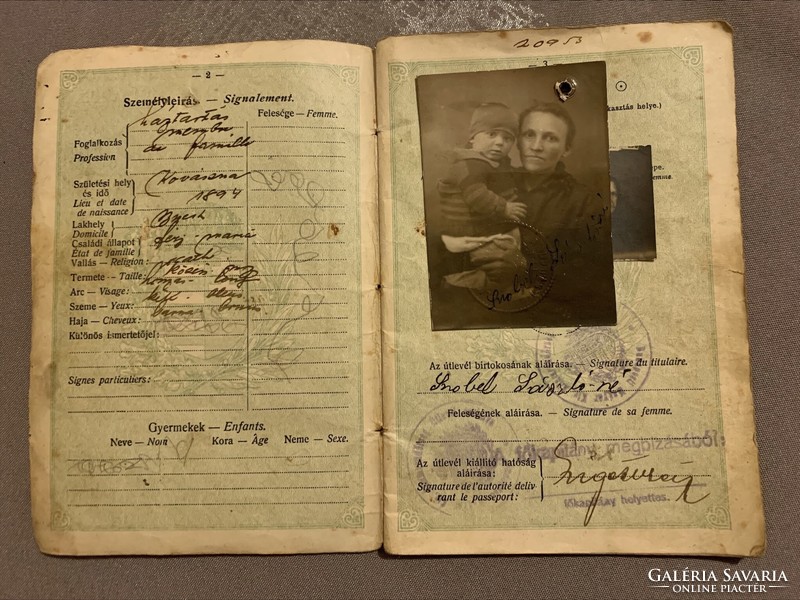 — 2 —
Személyleírás — Signalement.
Felesége — Femme.
háztartás
Foglalkozás
membre
Profession
de famille
Születési hely
és idő
Kovászna
Lieu et date
de naissance
1894
Lakhely
Domicile
Családi állapot
État de famille
férj. - mariée
Vallás — Religion:
r. cath.
Termete — Taille:
Arc — Visage:
Szeme — Yeux:
kék
Haja — Cheveux:
barna
Különös ismertetőjel:
Signes particuliers:
Gyermekek — Enfants.
Neve — Nom
Kora — Âge
Neme — Sexe.
20953
— 3 —
kasztás helye.)
Az útlevél birtokosának aláírása. — Signature du titulaire.
László-né
Feleségének aláírása. — Signature de sa femme.
A főkapitány megbízásából:
Az útlevél kiállító hatóság
aláírása:
Signature de l'autorité deliv
rant le passeport:
főkapitány helyettes.
GALÉRIA SAVARIA
ONLINE PIACTÉR